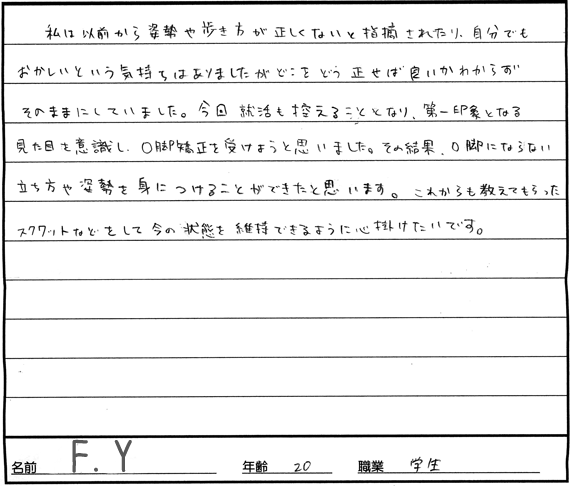 私は以前から姿勢や歩き方が正しくないと指摘されたり、自分でも
おかしいという気持ちはありましたがどこをどう正せば良いかわからず
そのままにしていました。今回就活も控えることとなり、第一印象となる
見た目を意識し、O脚矯正を受けようと思いました。その結果、O脚にならない
立ち方や姿勢を身につけることができたと思います。これからも教えてもらった
スクワットなどをして今の状態を維持できるように心掛けたいです。
名前 F.Y 年齢 20 職業 学生